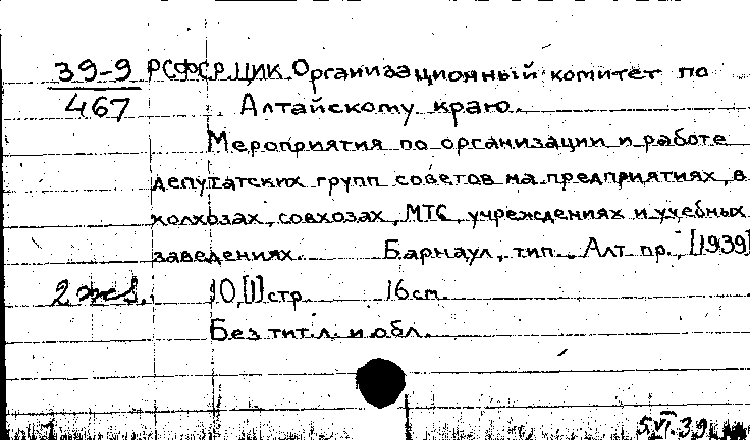 39-9 РСФСР. ЦИК. Организационный комитет по
467 Алтайскому краю.
Мероприятия по организации и работе
депутатских групп советов на предприятиях, в
колхозах, совхозах, МТС, учреждениях и учебных
заведениях. Барнаул, тип. Алт. пр., [1939]
2 экз. 10,[1] стр. 16 см.
Без тит. л. и обл.
5.VI.39